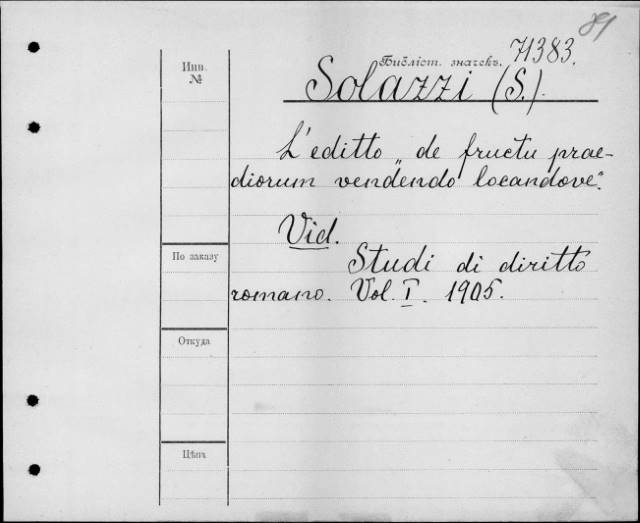 81
Инв.
№
Библіот. значекъ. 71383.
Solazzi (S.).
L'editto „de fructu prae-
diorum vendendo locandove".
Vid.
Studi di diritto
romano. Vol. I. 1905.
По заказу
Откуда
Цѣна